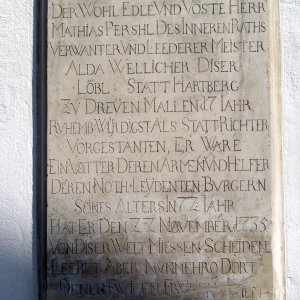 DER WOHL EDLE VND VÖSTE HERR
MATHIAS PERSHL DES INNEREN RATHS
VERWANTER VND LEEDERER MEISTER
ALDA WELLICHER DISER
LÖBL STATT HARTBERG
ZV DREVEN MALLEN 17 IAHR
RVHEMBWIRDIGST ALS STATT RICHTER
VORGESTANTEN, ER WARE
EIN VOTTER DEREN ARMEN VND HELFER
DEREN NOTH LEYDENTEN BVRGERN
SEINES ALTERS IN 77 IAHR
HAT ER DEN 27 NOVEMBER 1735
VON DISER WELT MIESSEN SCHEIDEN
LEEBET ABER NVNMEHRO DORT
DENEN EWIGEN FREVDEN